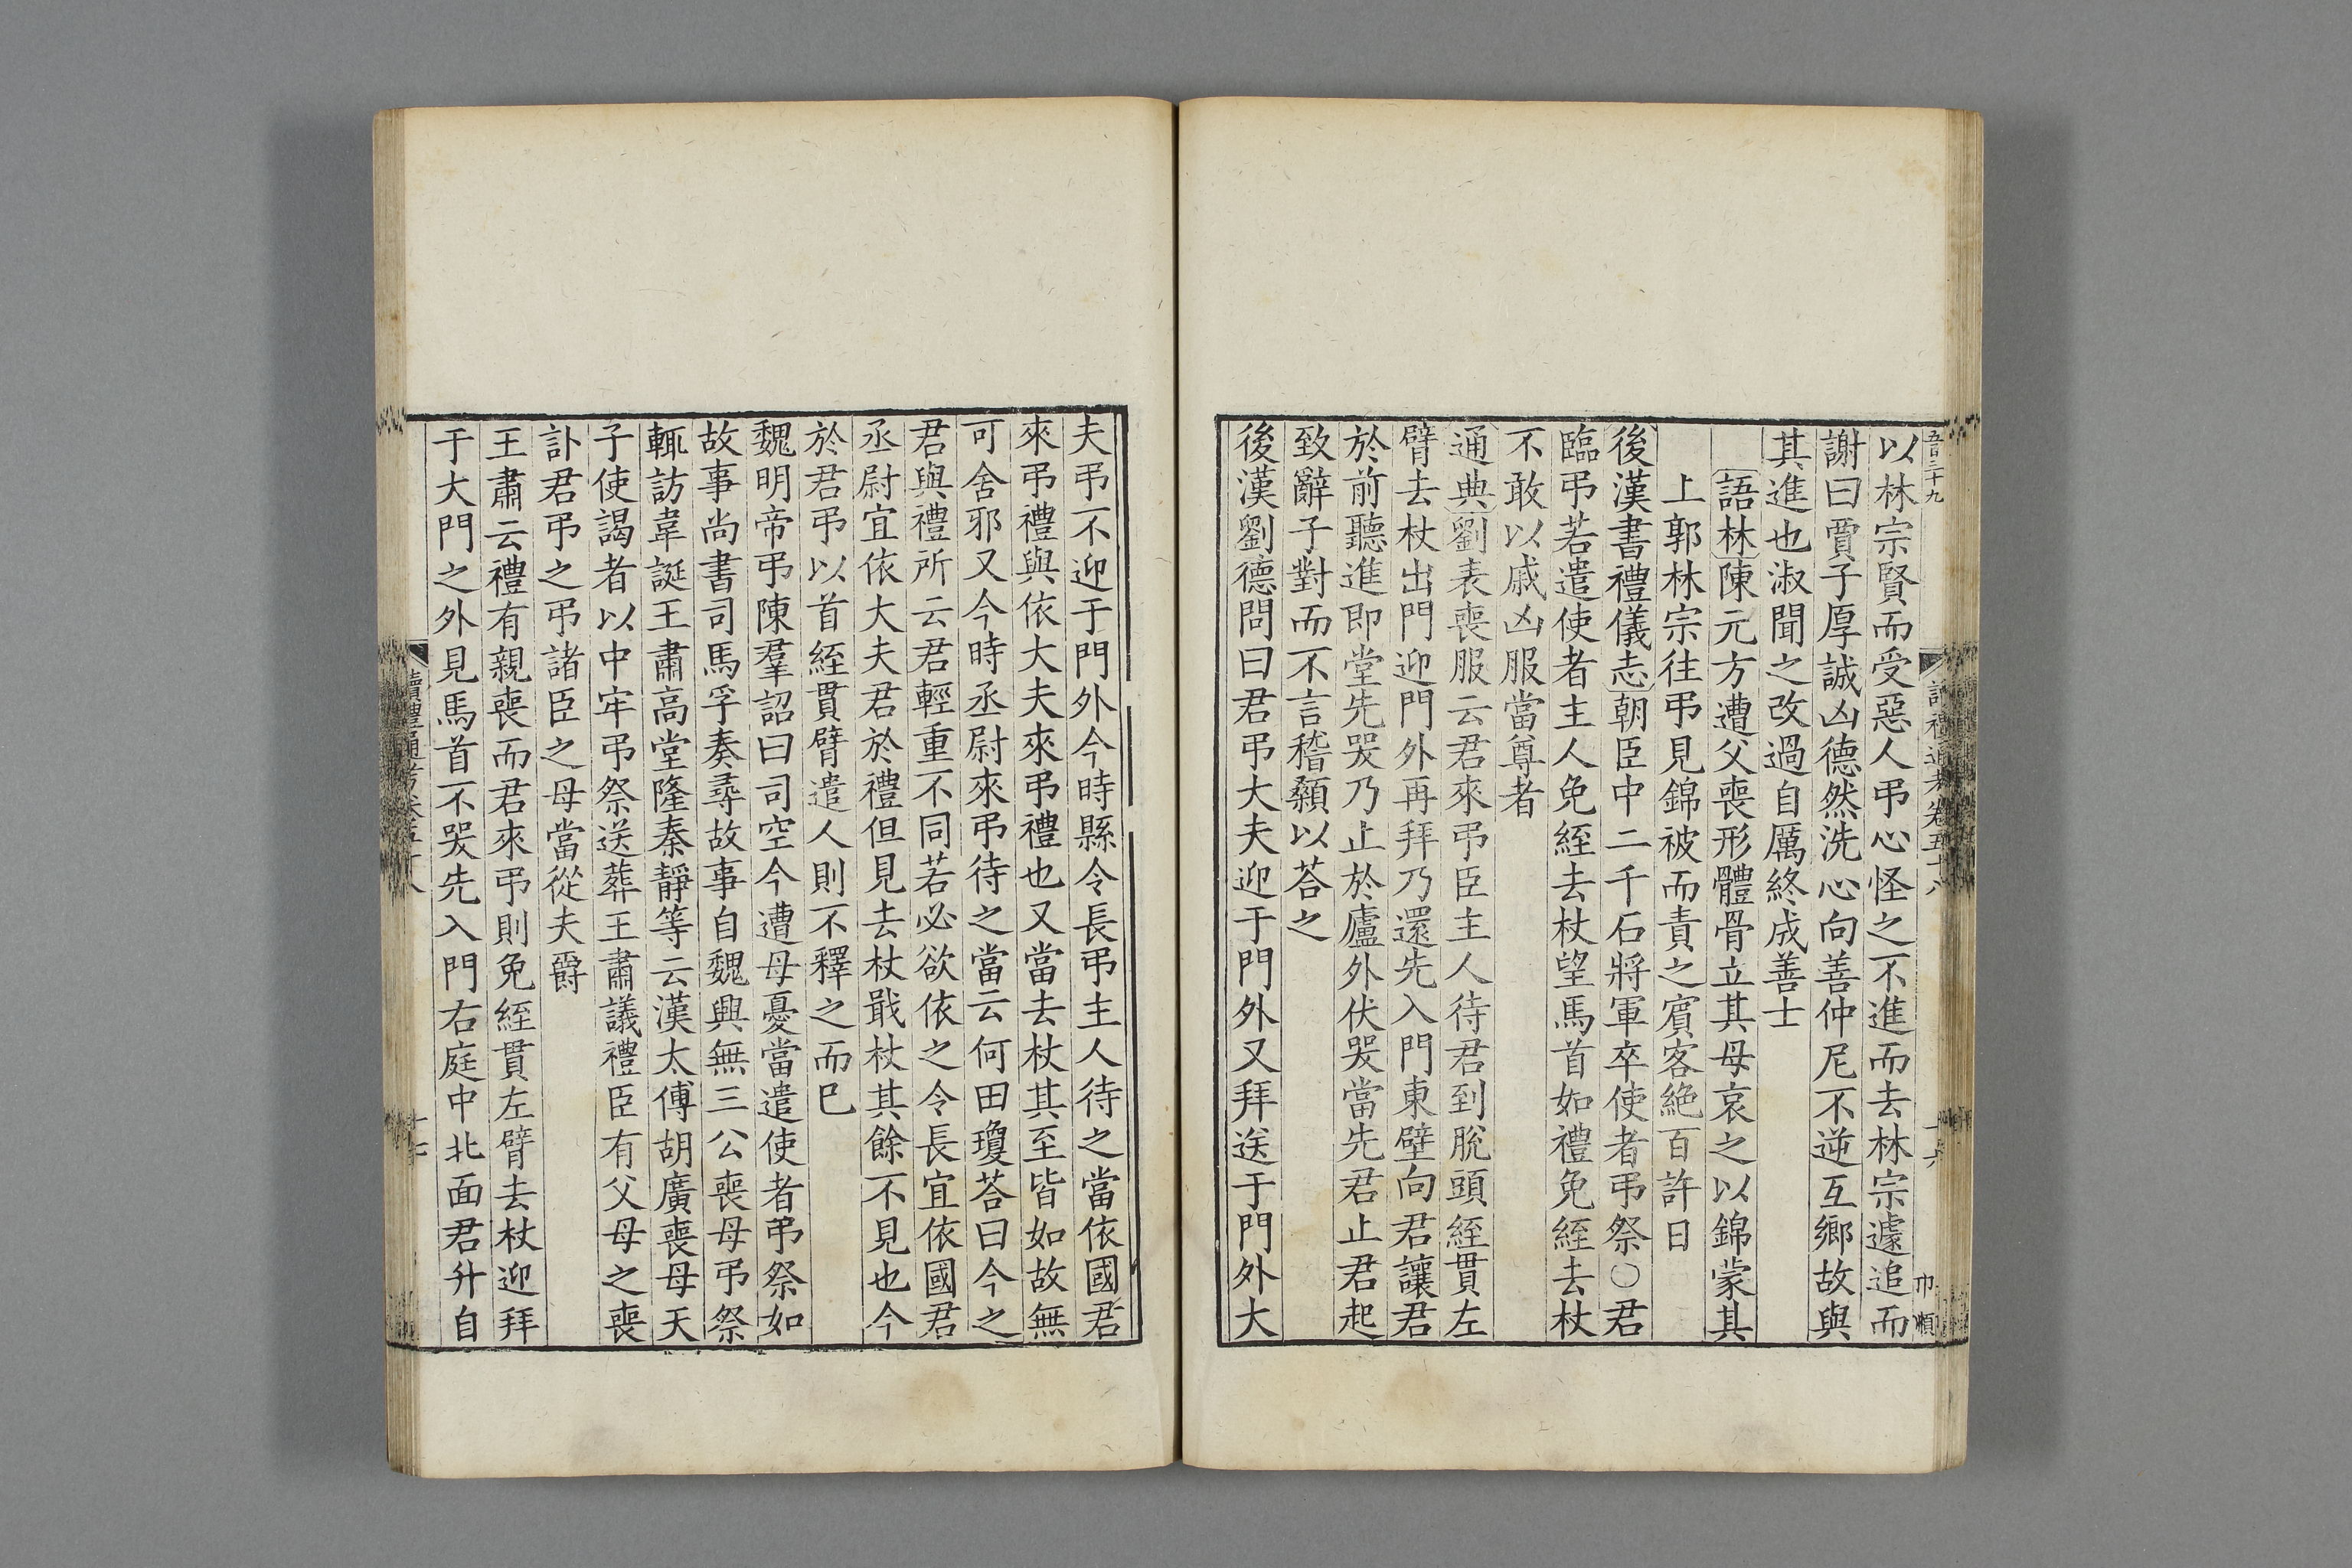 五百三十九
讀禮通考卷五十八
十六
以林宗賢而受惡人弔心怪之不進而去林宗遽追而
謝曰賈子厚誠凶德然洗心向善仲尼不逆互鄉故與
其進也淑聞之改過自厲終成善士
語林陳元方遭父喪形體骨立其母哀之以錦蒙其
上郭林宗往弔見錦被而責之賔客絶百許日
後漢書禮儀志朝臣中二千石將軍卒使者弔祭○君
臨弔若遣使者主人免絰去杖望馬首如禮免絰去杖
不敢以戚凶服當尊者
通典劉表喪服云君來弔臣主人待君到脫頭絰貫左
臂去杖出門迎門外再拜乃還先入門東壁向君讓君
於前聽進即堂先哭乃止於廬外伏哭當先君止君起
致辭子對而不言稽顙以荅之
後漢劉德問曰君弔大夫迎于門外又拜送于門外大
夫弔不迎于門外今時縣令長弔主人待之當依國君
來弔禮與依大夫來弔禮也又當去杖其至皆如故無
可舍邪又今時丞尉來弔待之當云何田瓊荅曰今之
君與禮所云君輕重不同若必欲依之令長宜依國君
丞尉宜依大夫君於禮但見去杖戢杖其餘不見也今
於君弔以首絰貫臂遣人則不釋之而巳
魏明帝弔陳羣詔曰司空今遭母憂當遣使者弔祭如
故事尚書司馬孚奏尋故事自魏興無三公喪母弔祭
輒訪韋誕王肅高堂隆秦靜等云漢太傅胡廣喪母天
子使謁者以中牢弔祭送葬王肅議禮臣有父母之喪
訃君弔之弔諸臣之母當從夫爵
王肅云禮有親喪而君來弔則免絰貫左臂去杖迎拜
于大門之外見馬首不哭先入門右庭中北面君升自
讀禮通考卷五十八
十七